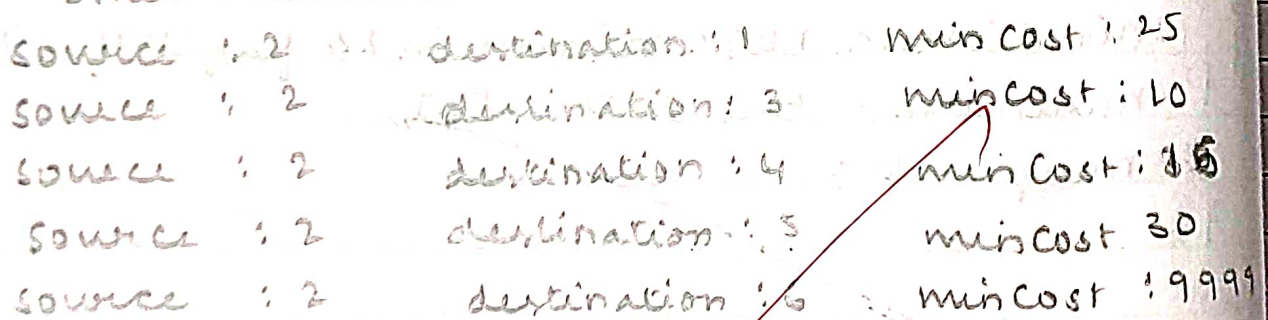 source : 2 destination : 1 min cost : 25
source : 2 destination : 3 min cost : 10
source : 2 destination : 4 min cost :
source : 2 destination : 5 min cost 30
source : 2 destination : 6 min cost : 9999